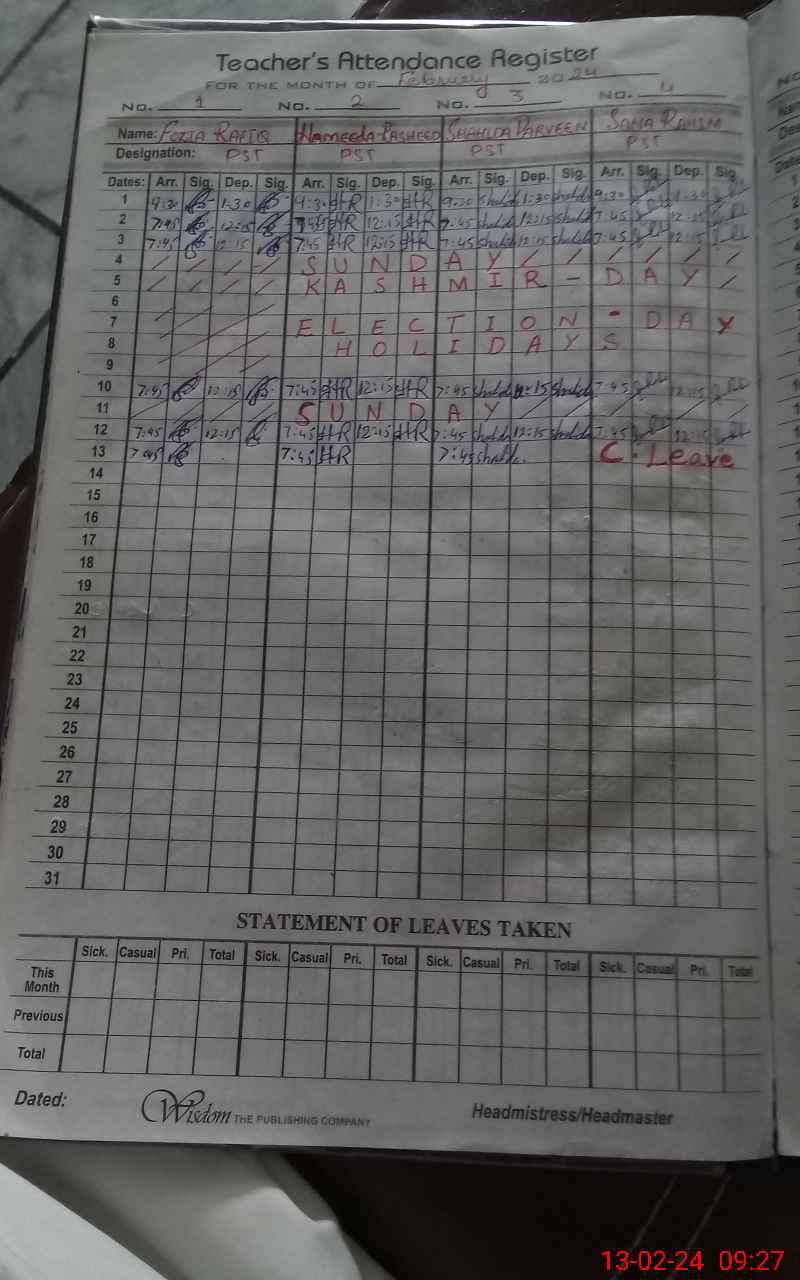 Teacher's Attendance Register
FOR THE MONTH OF February 2024
No. 1 No. 2 No. 3 No. 4
Name: FOZIA RAFIQ HAMEEDA RASHEED SHAHIDA PARVEEN SANA RAHIM
Designation: PST PST PST PST
Dates: Arr. Sig. Dep. Sig. Arr. Sig. Dep. Sig. Arr. Sig. Dep. Sig. Arr. Sig. Dep. Sig.
1 9:30 1:30 9:30 HR 1:30 HR 9:30 Shahida 1:30 Shahida 9:30 1:30
2 7:45 12:15 7:45 HR 12:15 HR 7:45 Shahida 12:15 Shahida 7:45 12:15
3 7:45 12:15 7:45 HR 12:15 HR 7:45 Shahida 12:15 Shahida 7:45 12:15
4 S U N D A Y
5 K A S H M I R - D A Y
6
7 E L E C T I O N - D A Y
8 H O L I D A Y S
9
10 7:45 12:15 7:45 HR 12:15 HR 7:45 Shahida 12:15 Shahida 7:45 12:15
11 S U N D A Y
12 7:45 12:15 7:45 HR 12:15 HR 7:45 Shahida 12:15 Shahida 7:45 12:15
13 7:45 7:45 HR 7:45 Shahida C. Leave
14
15
16
17
18
19
20
21
22
23
24
25
26
27
28
29
30
31
STATEMENT OF LEAVES TAKEN
Sick. Casual Pri. Total Sick. Casual Pri. Total Sick. Casual Pri. Total Sick. Casual Pri. Total
This Month
Previous
Total
Dated: Wisdom THE PUBLISHING COMPANY Headmistress/Headmaster
13-02-24 09:27